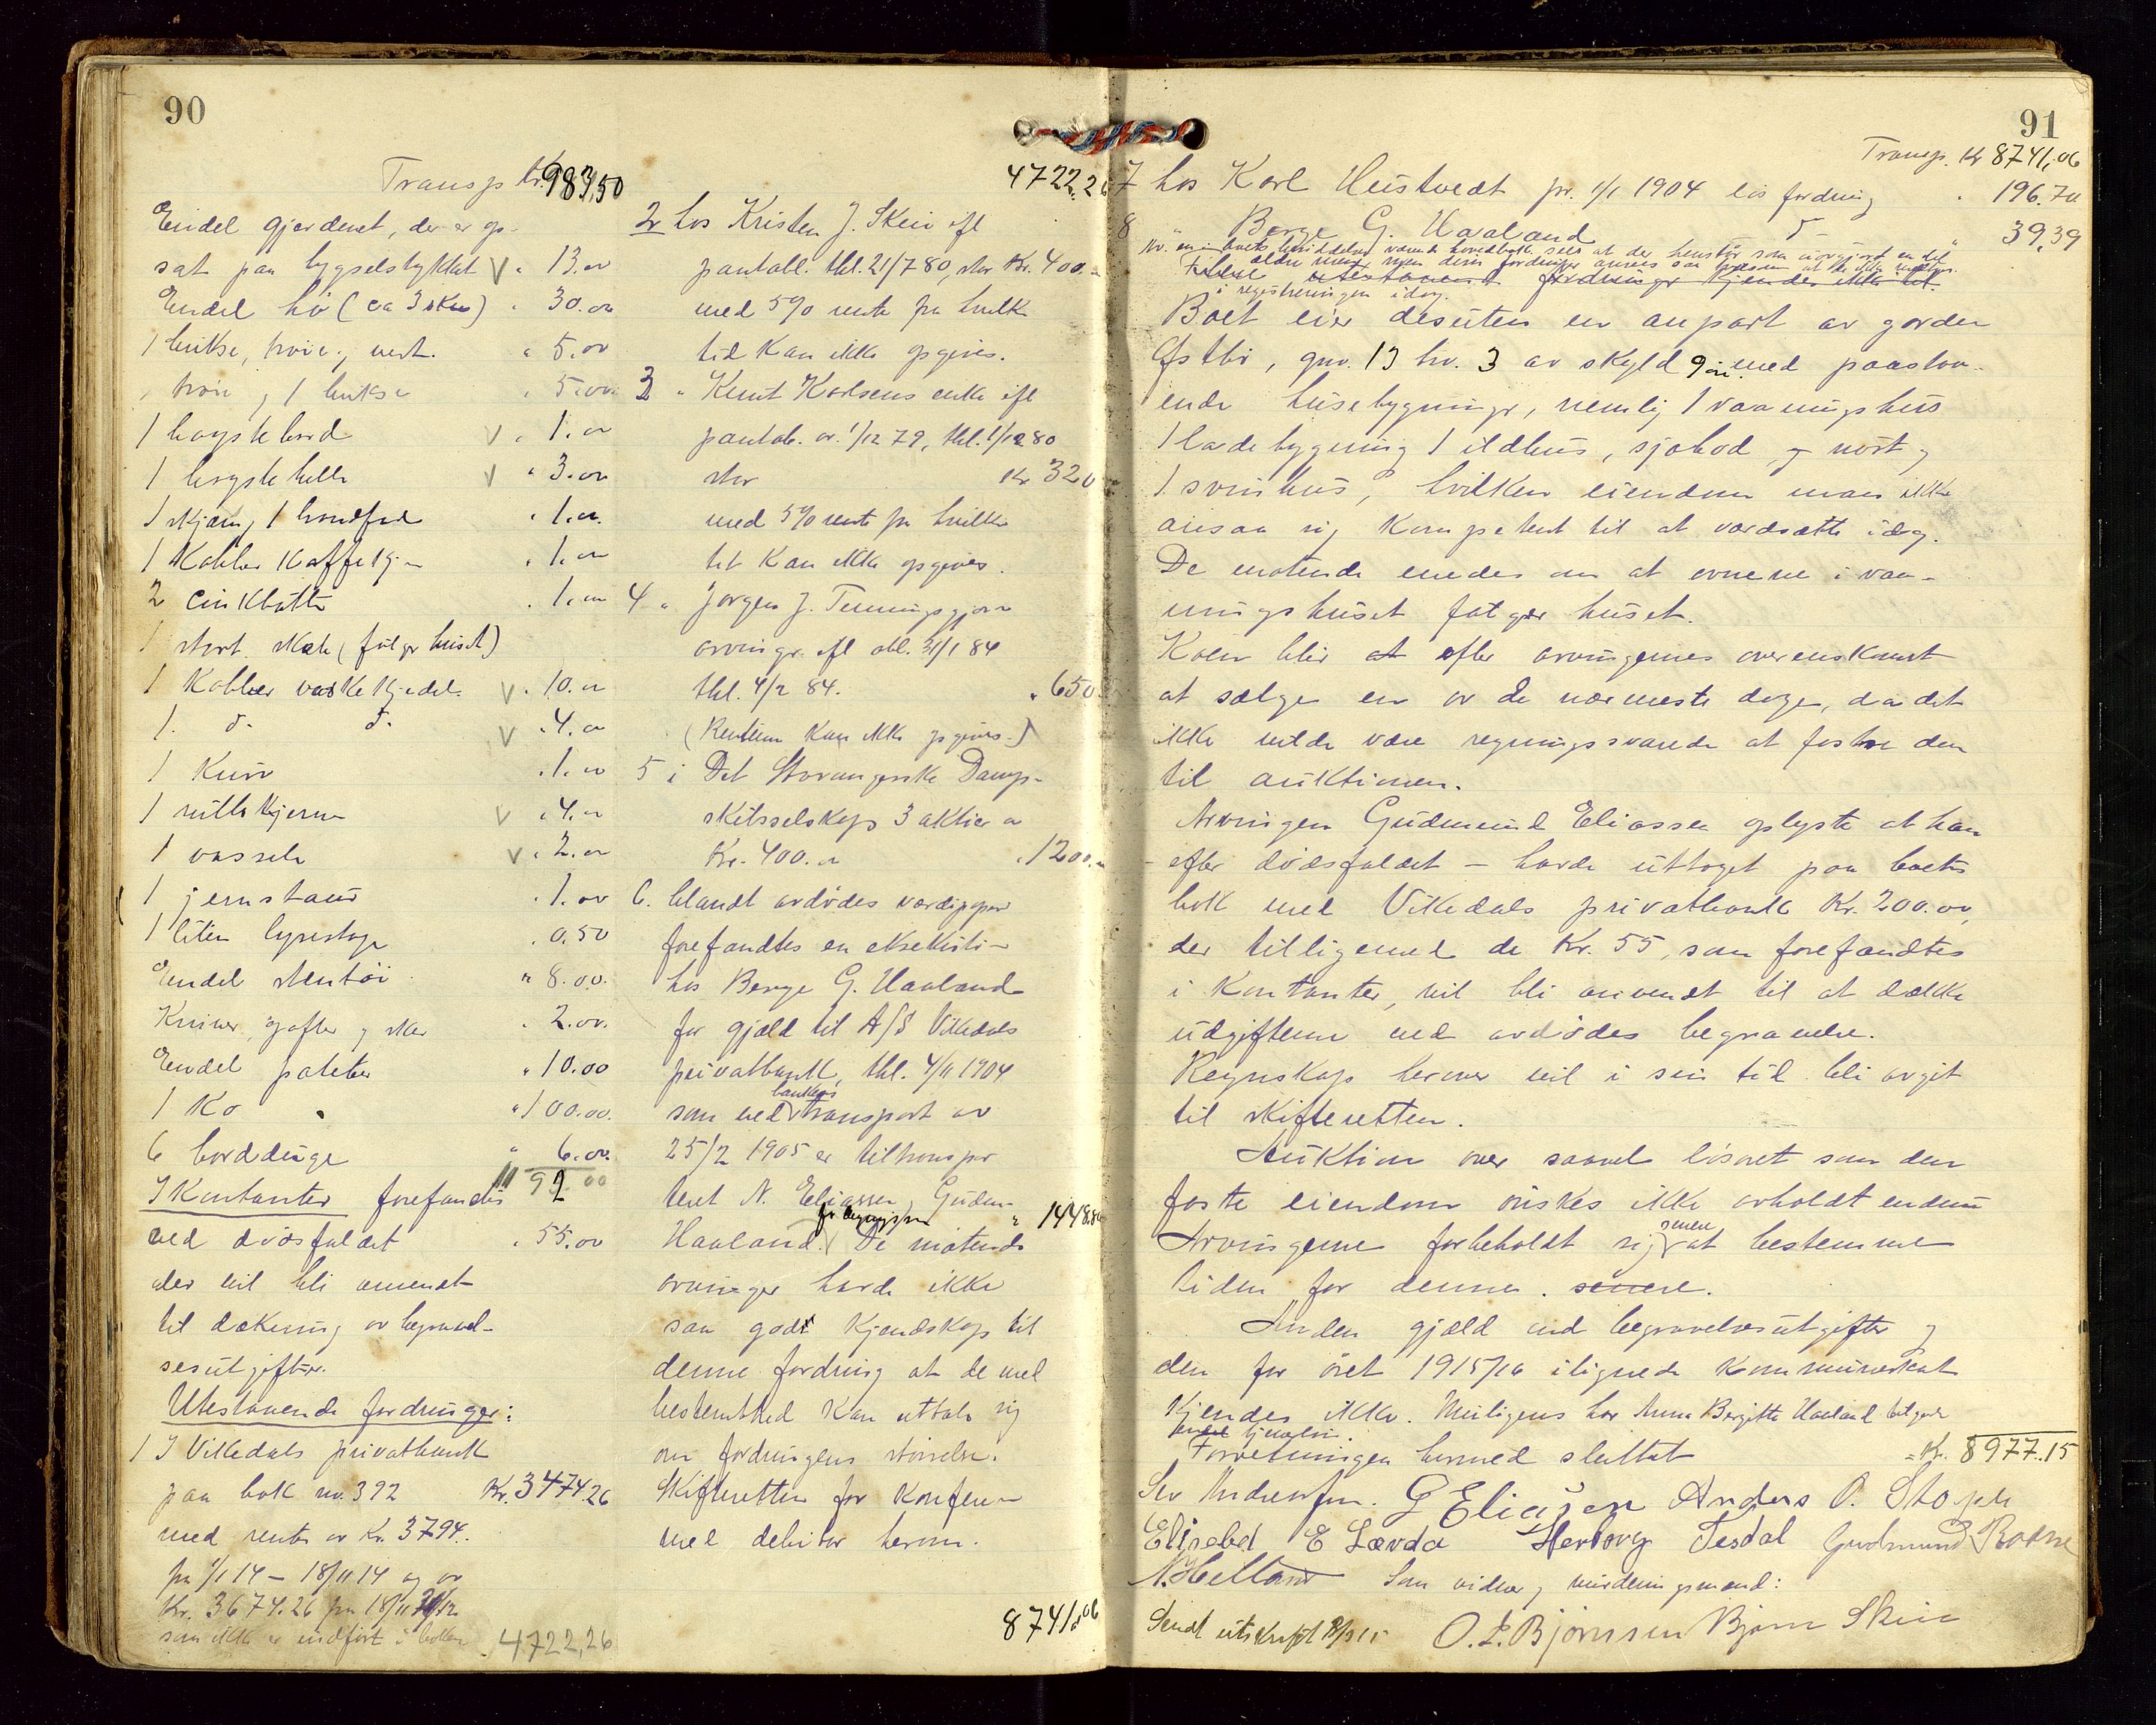 90
Transp Kr. 983,50
Endel gjerdenet, der er op-
sat paa bygselstykket V " 13.00
Endel hö (ca 3 skn) " 30.00
1 bukse, tröie, vest. " 5.00
1 tröie og 1 bukse " 5.00.
1 bord V " 1.00
1 V " 3.00
1 skjæring, 1 " 1.00.
1 Kobber Kaffekj. " 1.00
2 cinkbötter " 1.00
1 stort skab (følger huset)
1 Kobber vaskekjedel. V " 10.00
1. d- d- V " 4.00
1 Kurv " 1.00
1 kjerne V " 4.00
1 V " 2.00
1 jernstaur " 1.00
1 liten " 0.50
Endel stentöi " 8.00.
Kniver, gafler og skeer " 2.00.
Endel poteter " 10.00
1 Ko " 100.00.
6 bordduge " 6.00.
1192.00
I Kontanter forefandtes
ved dödsfaldet " 55.00
der vil bli anvendt
til dækning av begravel-
sesutgifter.
Utestaaende fordringer:
1 I Vikedals privatbank
paa bok nr. 392 Kr. 3474.26
med renter av Kr. 3794.
fra 1/1 14 – 18/11 14 og av
Kr. 3674.26 fra 18/11
som ikke er indfört i boken 4722,26
4722.26
2 hos Kristen J. Skeie ifl
pantobl. thl. 21/7 80, stor Kr. 400.
med 5% rente fra hvilken
tid kan ikke opgives.
3 " Knut Karlsens enke ifl
pantob. av 1/12 79, thl. 1/12 80
stor Kr 320
med 5% rente fra hvilken
tid kan ikke opgives.
4 " Jorgen J.
arvinger ifl obl. 31/1 84
thl. 4/2 84. " 650.
(Renten kan ikke opgives.)
5 i Det Stavangerske Damp-
skibsselskap 3 aktier a
Kr. 400.00 " 1200.
6. blandt avdödes værdipapirer
forefandtes en eksekution
hos Børge G. Haaland
for gjæld til A/S Vikedals
privatbank, thl. 4/11 1904
som ved bankens transport av
25/2 1905 er transpor-
tert N. Eliassen, Gudm.
Haaland. De mötende " 1448.80
arvinger havde ikke
saa godt kjendskap til
denne fordring at de med
bestemthed kan uttale sig
om fordringens störrelse.
Skifteretten for konferere
med debitor herom.
8741,06
91
Transp. Kr 8741,06
7 hos Karl Hustvedt pr. 1/1 1904 lös fordring " 196.70
8 " Børge G. Haaland d- " 39,39
i registreringen idag.
Boet eier desuten en anpart av gaarden
Østbö, gnr. 13 br. 3 av skyld 9 öre med paastaa-
ende husebygninger, nemlig 1 vaaningshus
1 ladebygning 1 ildhus, sjøbod og nöst og
1 svinhus, hvilken eiendom man ikke
ansaa sig kompetent til at værdsætte idag.
De mötende enedes om at ovnene i vaa-
ningshuset fölger huset.
Koen blir at efter arvingernes overenskomst
at sælge en av de nærmeste dage, da det
ikke vilde være regningssvarende at fostre den
til auktionen.
Arvingen Gudmund Eliassen oplyste at han
– efter dödsfaldet – havde uttaget paa boets
bok med Vikedals privatbank Kr. 200.00,
der tilligemed de Kr. 55, som forefandtes
i Kontanter, vil bli anvendt til at dække
udgifterne ved avdödes begravelse.
Regnskap herover vil i sin tid bli avgit
til skifteretten.
Auktion over saavel lösöret som den
faste eiendom önskes ikke avholdt endnu
Arvingerne forbeholdt sig senere at bestemme
tiden for denne. senere.
Anden gjæld end begravelsesutgifter og
den for aaret 1915/16 ilignede kommuneskat
kjendes ikke. Muligens har Anna Bergitte Haaland tilgode
Forretningen hermed sluttet
= Kr. 8977.15
Sev Andersen. G Eliasen Anders O. Stople
Elisebet E Lævda Herborg Tesdal Gudmund
N. Helland Som vidner og vurderingsmænd:
Sendt utskrift O. L. Björnsen Bjørn Skeie